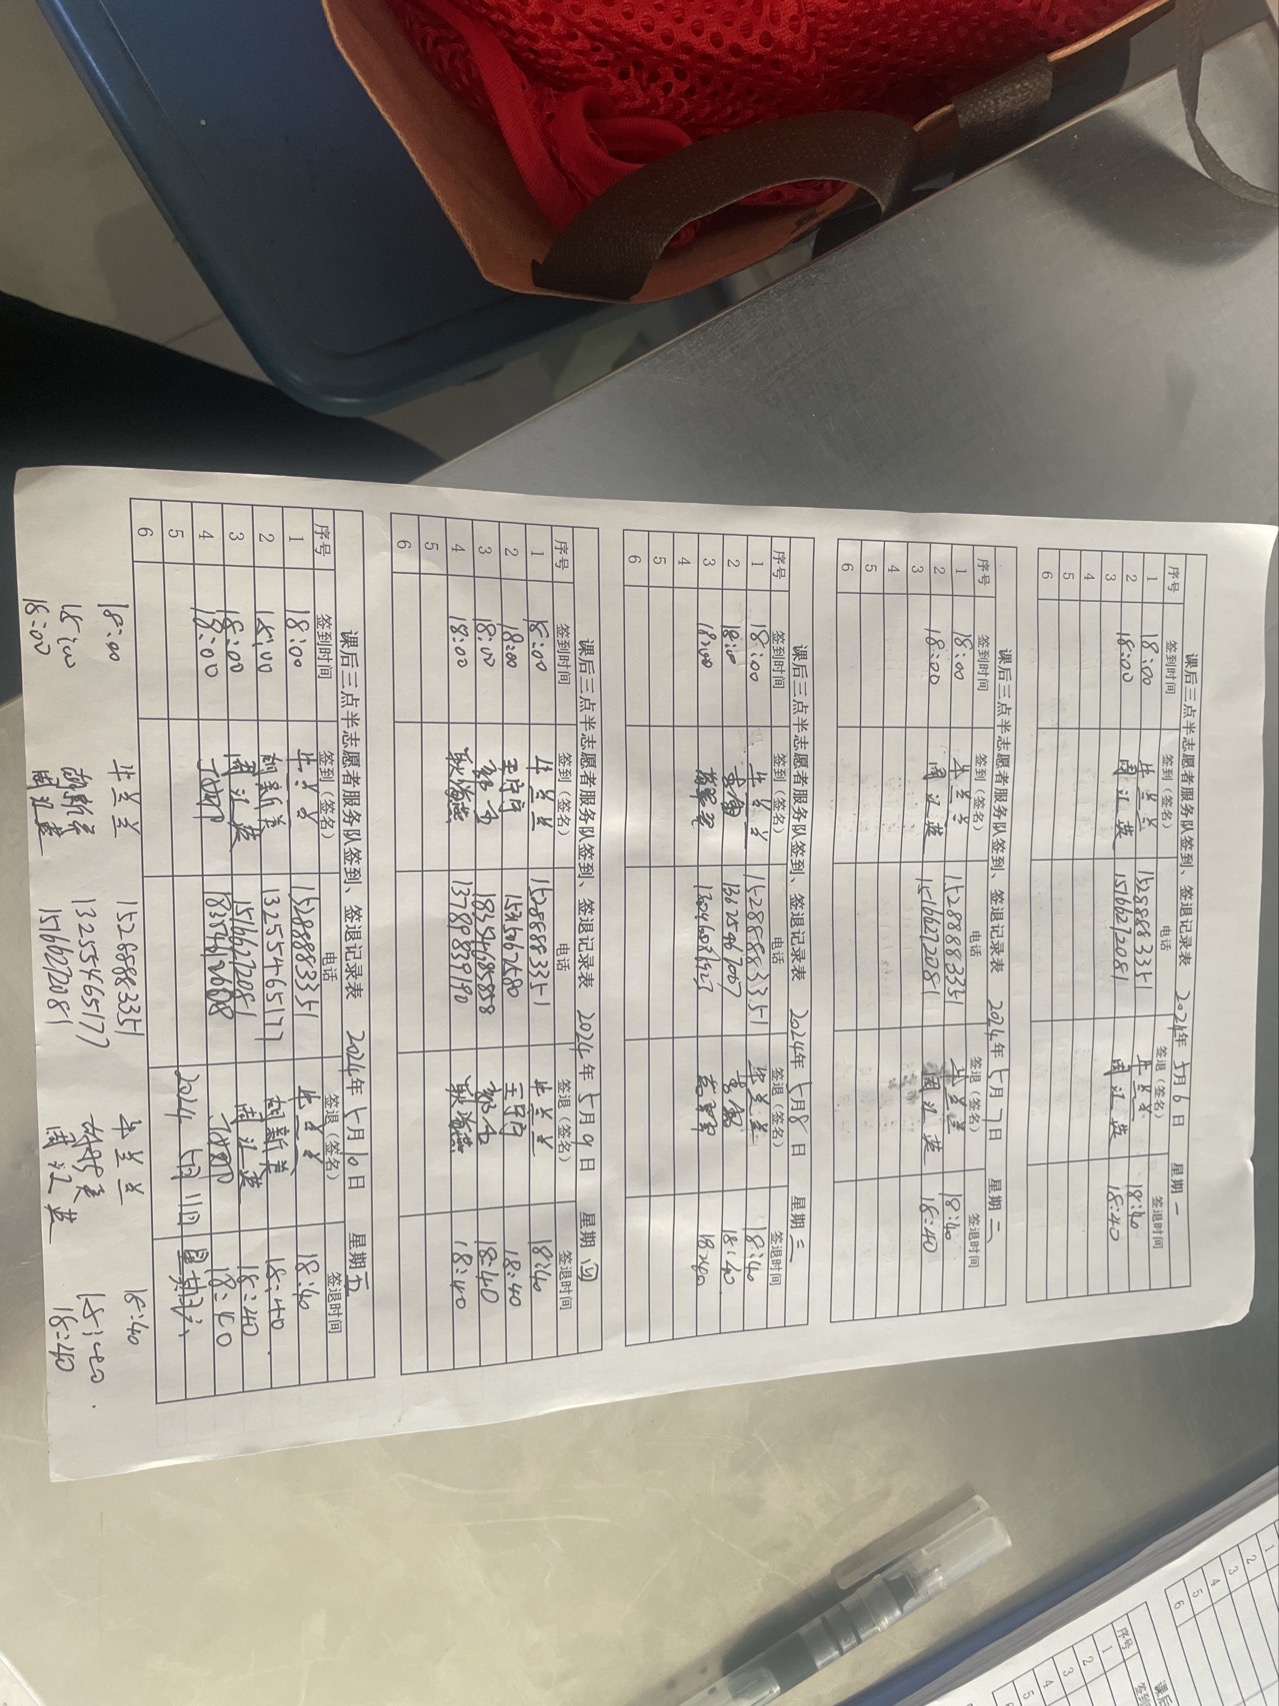 课后三点半志愿者服务队签到、签退记录表 2024年 5月 6日 星期 一
序号 签到时间 签到（签名） 电话 签退（签名） 签退时间
1 18:00 毕兰兰 15288883351 毕兰兰 18:40
2 18:00 周江英 15166272081 周江英 18:40
3
4
5
6
课后三点半志愿者服务队签到、签退记录表 2024年 5月 7日 星期 二
序号 签到时间 签到（签名） 电话 签退（签名） 签退时间
1 18:00 毕兰兰 15288883351 毕兰兰 18:40
2 18:00 周江英 15166272081 周江英 18:40
3
4
5
6
课后三点半志愿者服务队签到、签退记录表 2024年 5月 8日 星期 三
序号 签到时间 签到（签名） 电话 签退（签名） 签退时间
1 18:00 毕兰兰 15288883351 毕兰兰 18:40
2 18:00 18:40
3 18:00 18:40
4
5
6
课后三点半志愿者服务队签到、签退记录表 2024年 5月 9日 星期 四
序号 签到时间 签到（签名） 电话 签退（签名） 签退时间
1 18:00 毕兰兰 15288883351 毕兰兰 18:40
2 18:00 18:40
3 18:00 18:40
4 18:00 13789839190 18:40
5
6
课后三点半志愿者服务队签到、签退记录表 2024年 5月 10日 星期 五
序号 签到时间 签到（签名） 电话 签退（签名） 签退时间
1 18:00 毕兰兰 15288883351 毕兰兰 18:40
2 18:00 胡新美 13255465177 胡新美 18:40
3 18:00 周江英 15166272081 周江英 18:40
4 18:00 18:40
5 2024 5月 11日 星期六
6
18:00 毕兰兰 15288883351 毕兰兰 18:40
18:00 胡新美 13255465177 胡新美 18:40
18:00 周江英 15166272081 周江英 18:40
1
2
3
4
5
6
课后
序号 签到
1
2
3
4
5